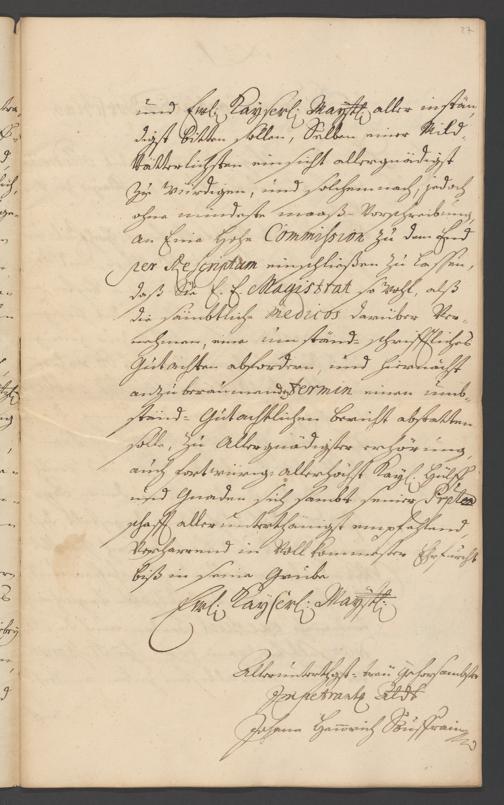 27
und Ewl: Kayserl: Mayستt: aller instän-
digst bitten sollen, Selben einer Mild-
Vätterlichsten einsicht allergnädigst
zu würdigen, und solchemnach, jedoch
ohne mindeste maaß-Vorschreibung,
an Eine Hohe Commission zu dem End
per Rescriptum einschließen zu lassen,
daß Sie E. E. Magistrat so wohl, alß
die sämbtliche Medicos darüber Ver-
nehmen, eine umständ-schrifftliches
Gutachten abfordern, und hiernächst
anzuberaumenden Termin einen umb-
ständ-Gutachtlichen bericht abstatten
solle, zu Allergnädigster erhörung,
auch fortwürig: Allerhöchst Kayl. Hülff
und Gnaden sich sambt seiner
schafft allerunterthänigst empfehlend,
Verharrend in Vollkommester Ehrfurcht
biß in seine Grube
Ewl: Kayserl: Maystt:
Allerunterthgst-treu gehorsambster
Impetrant
Johann Heinrich